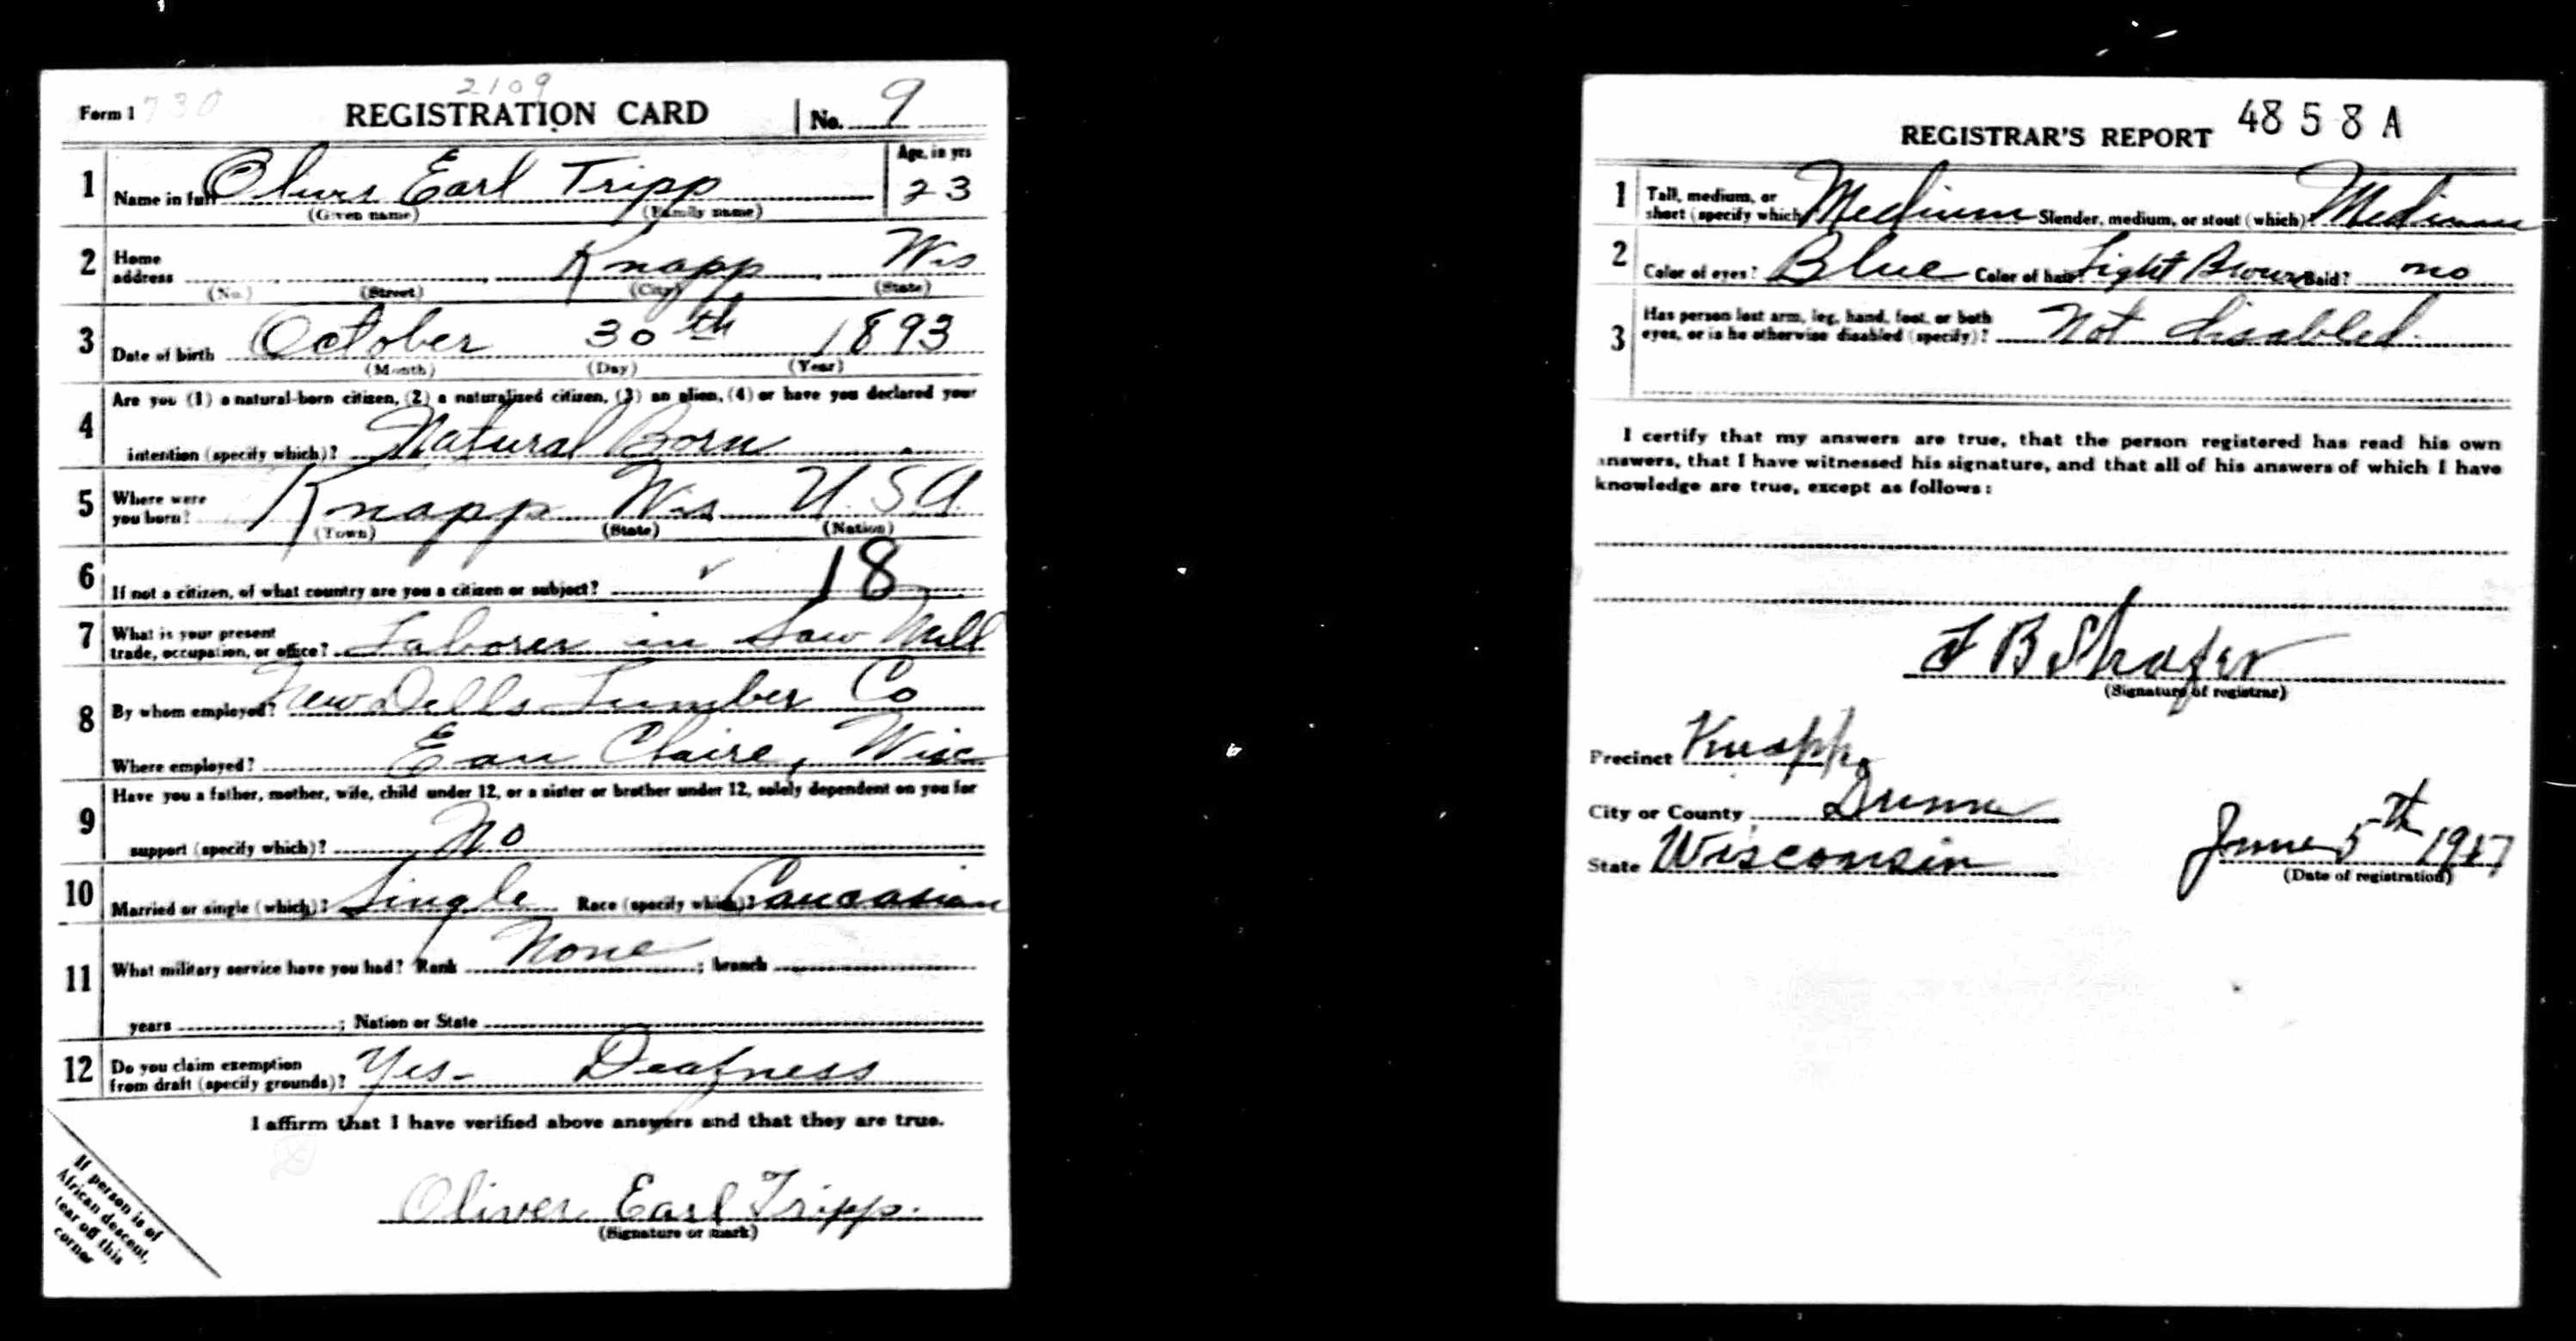 2109
Form 1 730 REGISTRATION CARD No. 9
1 Name in full Oliver Earl Tripp Age, in yrs 23
(Given name) (Family name)
2 Home address Knapp Wis
(No.) (Street) (City) (State)
3 Date of birth October 30th 1893
(Month) (Day) (Year)
4 Are you (1) a natural-born citizen, (2) a naturalized citizen, (3) an alien, (4) or have you declared your
intention (specify which)? Natural Born
5 Where were you born? Knapp Wis U.S.A.
(Town) (State) (Nation)
6 If not a citizen, of what country are you a citizen or subject? ✓ 18
7 What is your present trade, occupation, or office? Laborer in Saw Mill
8 By whom employed? New Dells Lumber Co
Where employed? Eau Claire, Wisc
9 Have you a father, mother, wife, child under 12, or a sister or brother under 12, solely dependent on you for
support (specify which)? No
10 Married or single (which)? Single Race (specify which)? Caucasian
11 What military service have you had? Rank None ; branch
years ; Nation or State
12 Do you claim exemption from draft (specify grounds)? Yes- Deafness
I affirm that I have verified above answers and that they are true.
Oliver Earl Tripp.
(Signature or mark)
If person is of
African descent,
tear off this
corner
REGISTRAR'S REPORT 4858A
1 Tall, medium, or short (specify which)? Medium Slender, medium, or stout (which)? Medium
2 Color of eyes? Blue Color of hair? Light Brown Bald? no
3 Has person lost arm, leg, hand, foot, or both
eyes, or is he otherwise disabled (specify)? Not disabled.
I certify that my answers are true, that the person registered has read his own
answers, that I have witnessed his signature, and that all of his answers of which I have
knowledge are true, except as follows:
F B Shafer
(Signature of registrar)
Precinct Knapp
City or County Dunn
State Wisconsin June 5th 1917
(Date of registration)